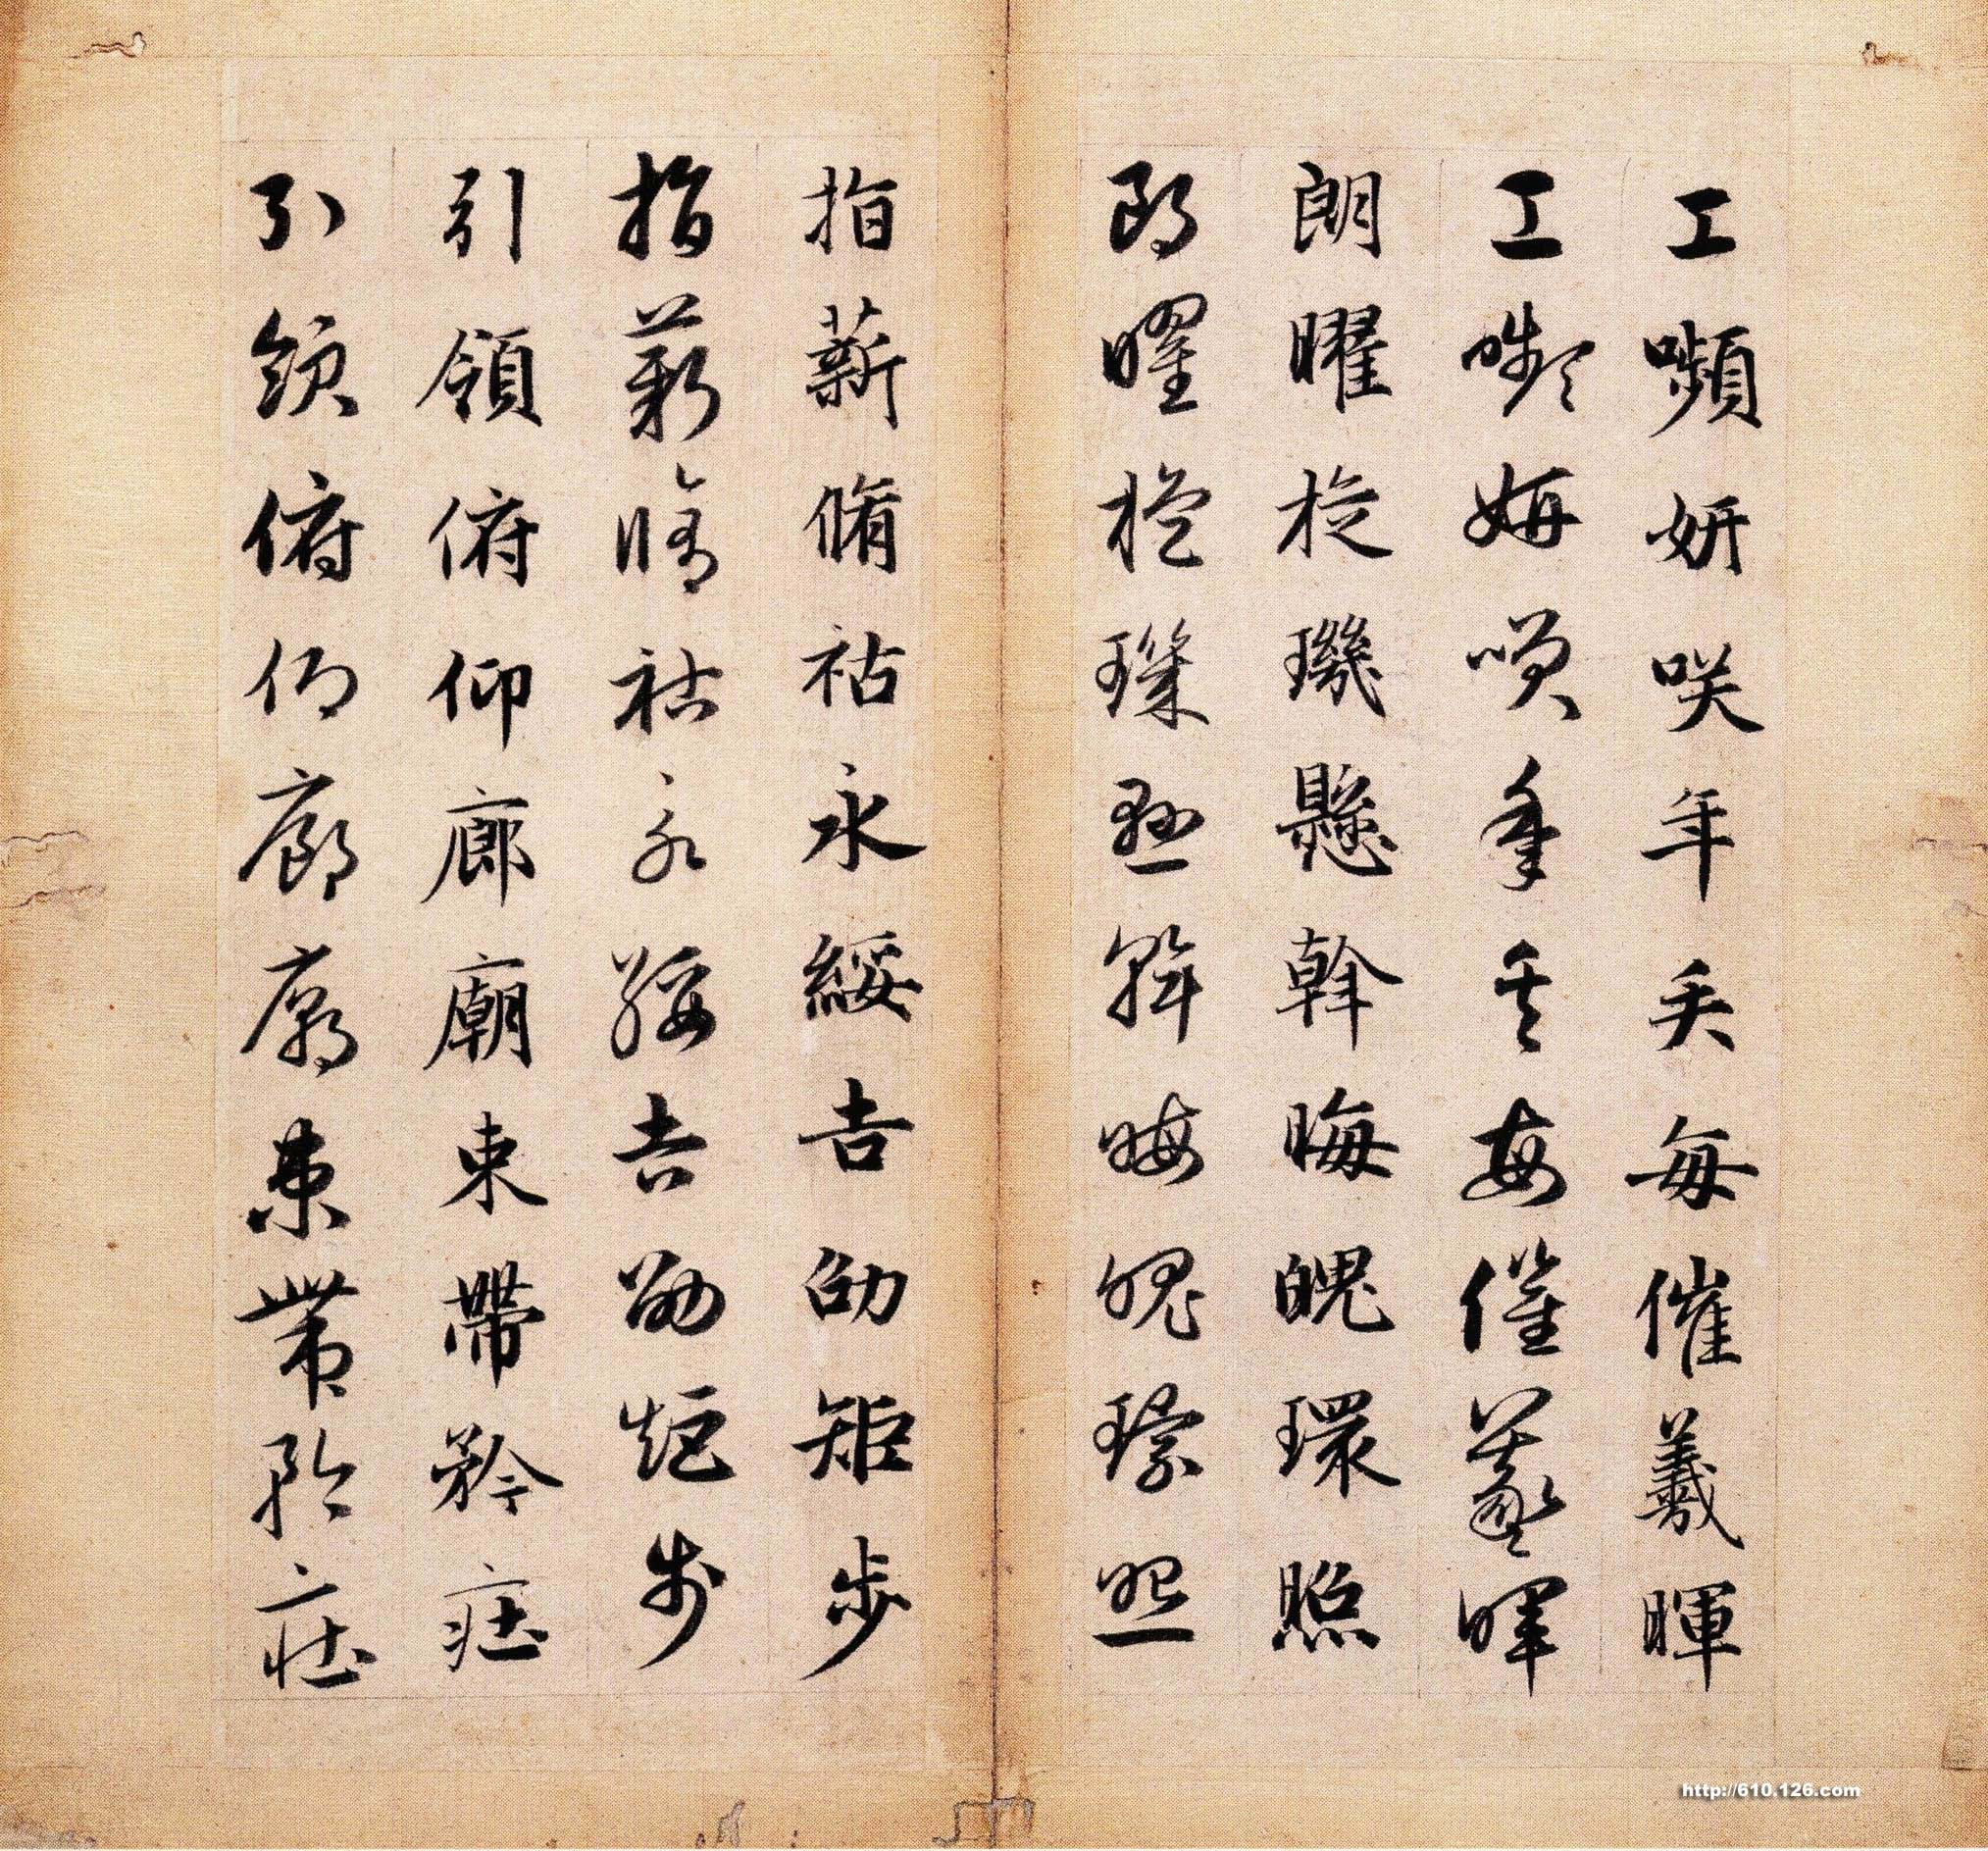 工嚬妍咲年矢每催羲暉
工嚬妍咲年矢每催羲暉
朗曜旋璣懸斡晦魄環照
朗曜旋璣懸斡晦魄環照
指薪脩祜永綏吉劭矩步
指薪脩祜永綏吉劭矩步
引領俯仰廊廟束帶矜莊
引領俯仰廊廟束帶矜莊
http://610.126.com